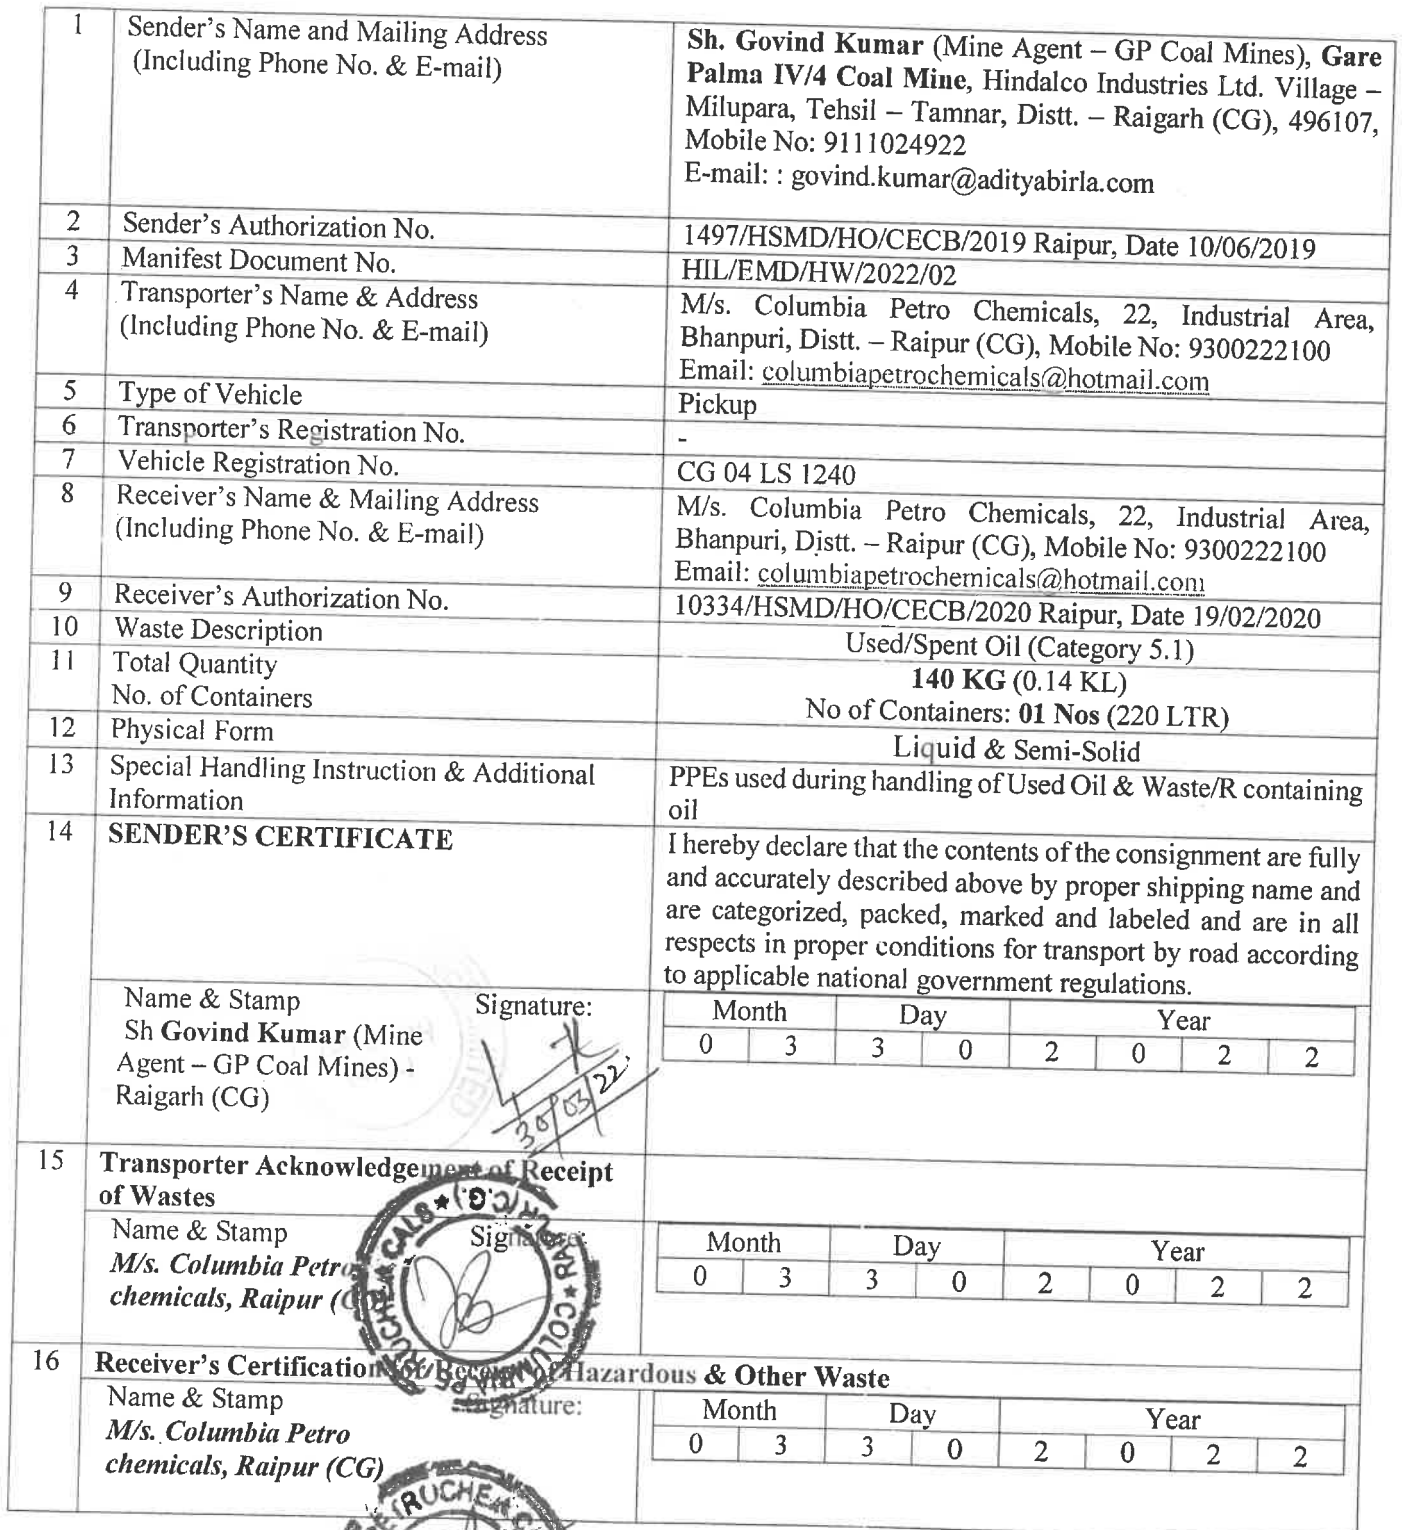 1 Sender's Name and Mailing Address
(Including Phone No. & E-mail)
Sh. Govind Kumar (Mine Agent – GP Coal Mines), Gare
Palma IV/4 Coal Mine, Hindalco Industries Ltd. Village –
Milupara, Tehsil – Tamnar, Distt. – Raigarh (CG), 496107,
Mobile No: 9111024922
E-mail: : govind.kumar@adityabirla.com
2 Sender's Authorization No.
1497/HSMD/HO/CECB/2019 Raipur, Date 10/06/2019
3 Manifest Document No.
HIL/EMD/HW/2022/02
4 Transporter's Name & Address
(Including Phone No. & E-mail)
M/s. Columbia Petro Chemicals, 22, Industrial Area,
Bhanpuri, Distt. – Raipur (CG), Mobile No: 9300222100
Email: columbiapetrochemicals@hotmail.com
5 Type of Vehicle
Pickup
6 Transporter's Registration No.
-
7 Vehicle Registration No.
CG 04 LS 1240
8 Receiver's Name & Mailing Address
(Including Phone No. & E-mail)
M/s. Columbia Petro Chemicals, 22, Industrial Area,
Bhanpuri, Distt. – Raipur (CG), Mobile No: 9300222100
Email: columbiapetrochemicals@hotmail.com
9 Receiver's Authorization No.
10334/HSMD/HO/CECB/2020 Raipur, Date 19/02/2020
10 Waste Description
Used/Spent Oil (Category 5.1)
11 Total Quantity
No. of Containers
140 KG (0.14 KL)
No of Containers: 01 Nos (220 LTR)
12 Physical Form
Liquid & Semi-Solid
13 Special Handling Instruction & Additional
Information
PPEs used during handling of Used Oil & Waste/R containing
oil
14 SENDER'S CERTIFICATE
I hereby declare that the contents of the consignment are fully
and accurately described above by proper shipping name and
are categorized, packed, marked and labeled and are in all
respects in proper conditions for transport by road according
to applicable national government regulations.
Name & Stamp Signature:
Sh Govind Kumar (Mine
Agent – GP Coal Mines) -
Raigarh (CG)
30/03/22
Month Day Year
0 3 3 0 2 0 2 2
15 Transporter Acknowledgement of Receipt
of Wastes
Name & Stamp Signature:
M/s. Columbia Petro
chemicals, Raipur
Month Day Year
0 3 3 0 2 0 2 2
16 Receiver's Certification for Receipt of Hazardous & Other Waste
Name & Stamp Signature:
M/s. Columbia Petro
chemicals, Raipur (CG)
Month Day Year
0 3 3 0 2 0 2 2